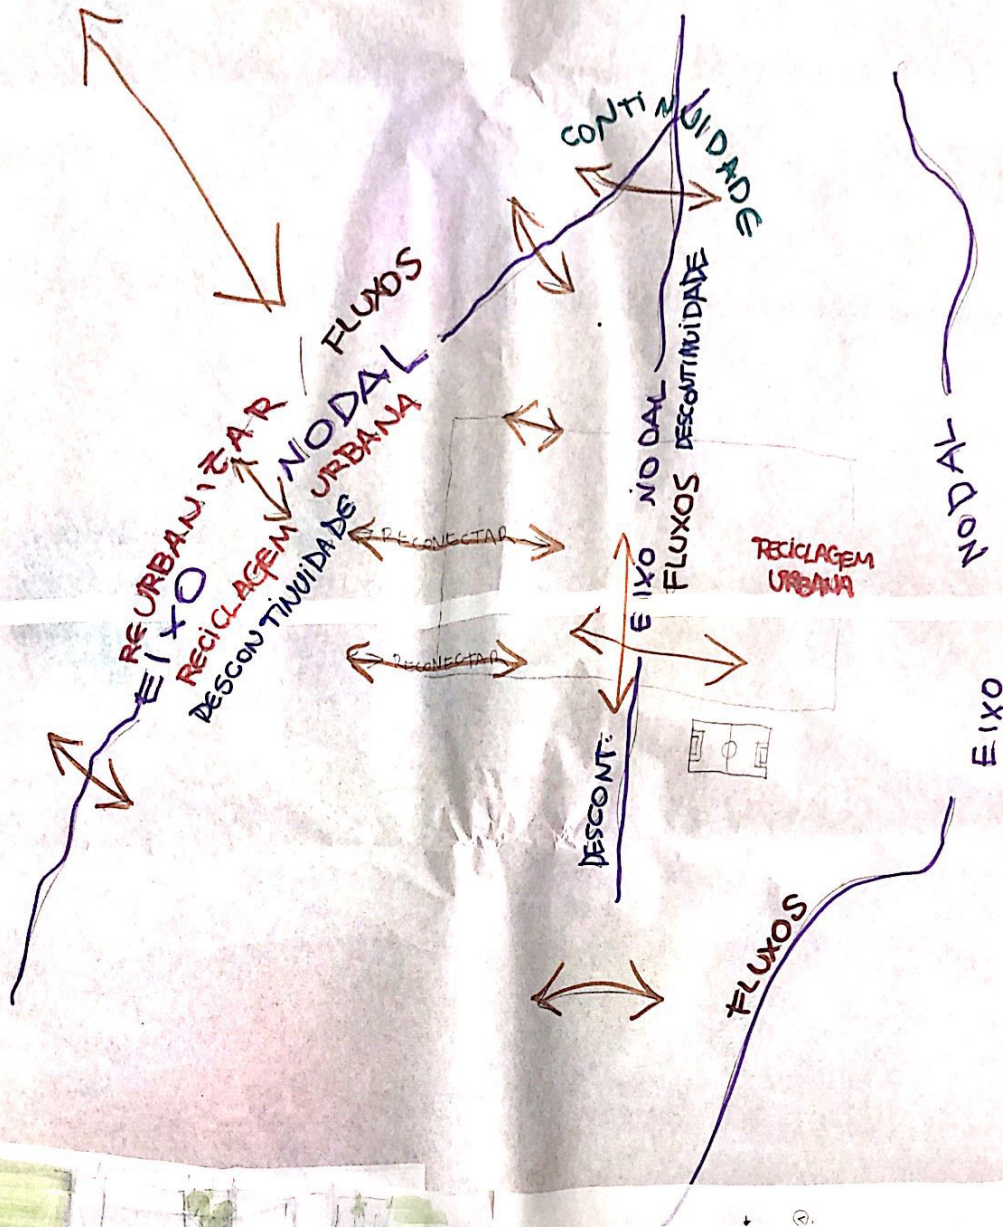 CONTINUIDADE
FLUXOS
REURBANIZAR
EIXO NODAL
RECICLAGEM URBANA
DESCONTINUIDADE
RECONECTAR
RECONECTAR
EIXO NODAL
FLUXOS DESCONTINUIDADE
DESCONT.
RECICLAGEM
URBANA
EIXO NODAL
FLUXOS